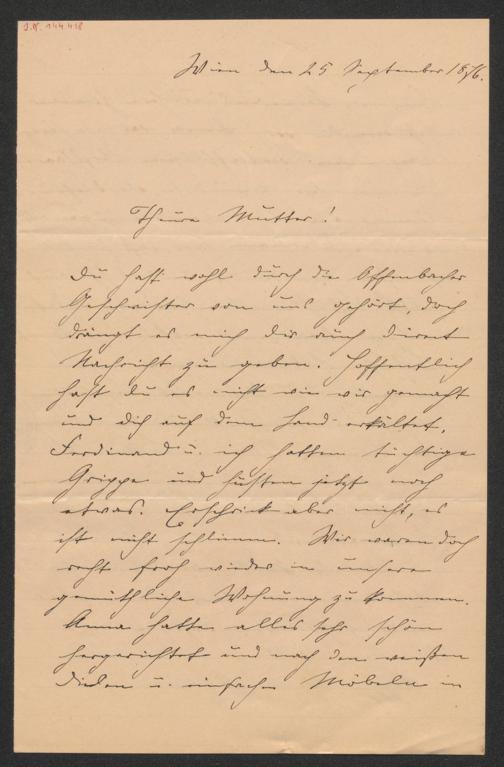 J.N. 144.418
Wien den 25 September 1876.
Theure Mutter!
Du hast wohl durch die Offenbacher
Geschwister von uns gehört, doch
drängt es mich dir auch direct
Nachricht zu geben. Hoffentlich
hast du es nicht wie wir gemacht
und dich auf dem Land erkältet,
Ferdinand u. ich hatten tüchtige
Grippe und husten jetzt noch
etwas. Erschrick aber nicht, es
ist nicht schlimm. Wir waren doch
recht froh wieder in unsere
gemüthliche Wohnung zu kommen.
Anna hatte alles sehr schön
hergerichtet und nach den weißen
u. einfachen Möbeln in